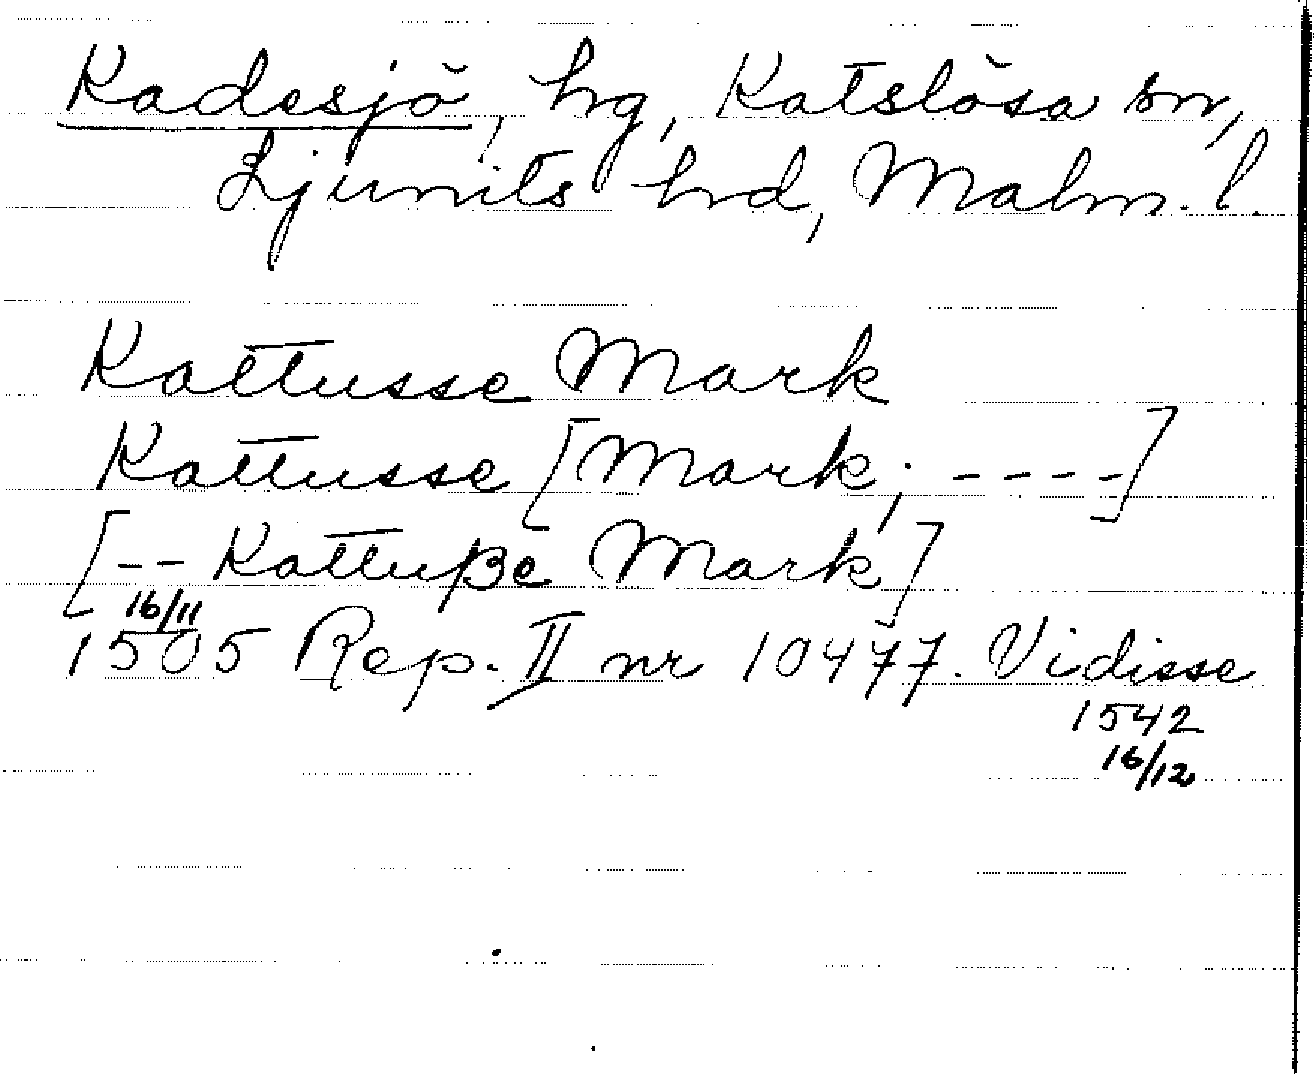 Kadesjö, hg, Katslösa sn,
Ljunits hrd, Malm. l.
Kattusse Mark
Kattusse [Mark; ----]
[-- Kattuße Mark]
16/11
1505 Rep. II nr 10477. Vidisse
1542
16/12